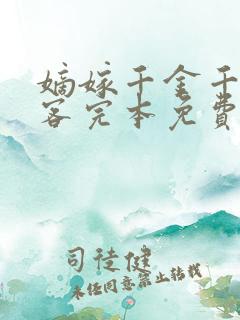 嫡嫁千金千
客完本免費
司徒健
未经同意禁止转载